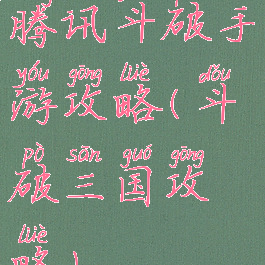 腾讯斗破手
yóu gōng lüè dǒu
游攻略(斗
pò sān guó gōng
破三国攻
lüè
略)